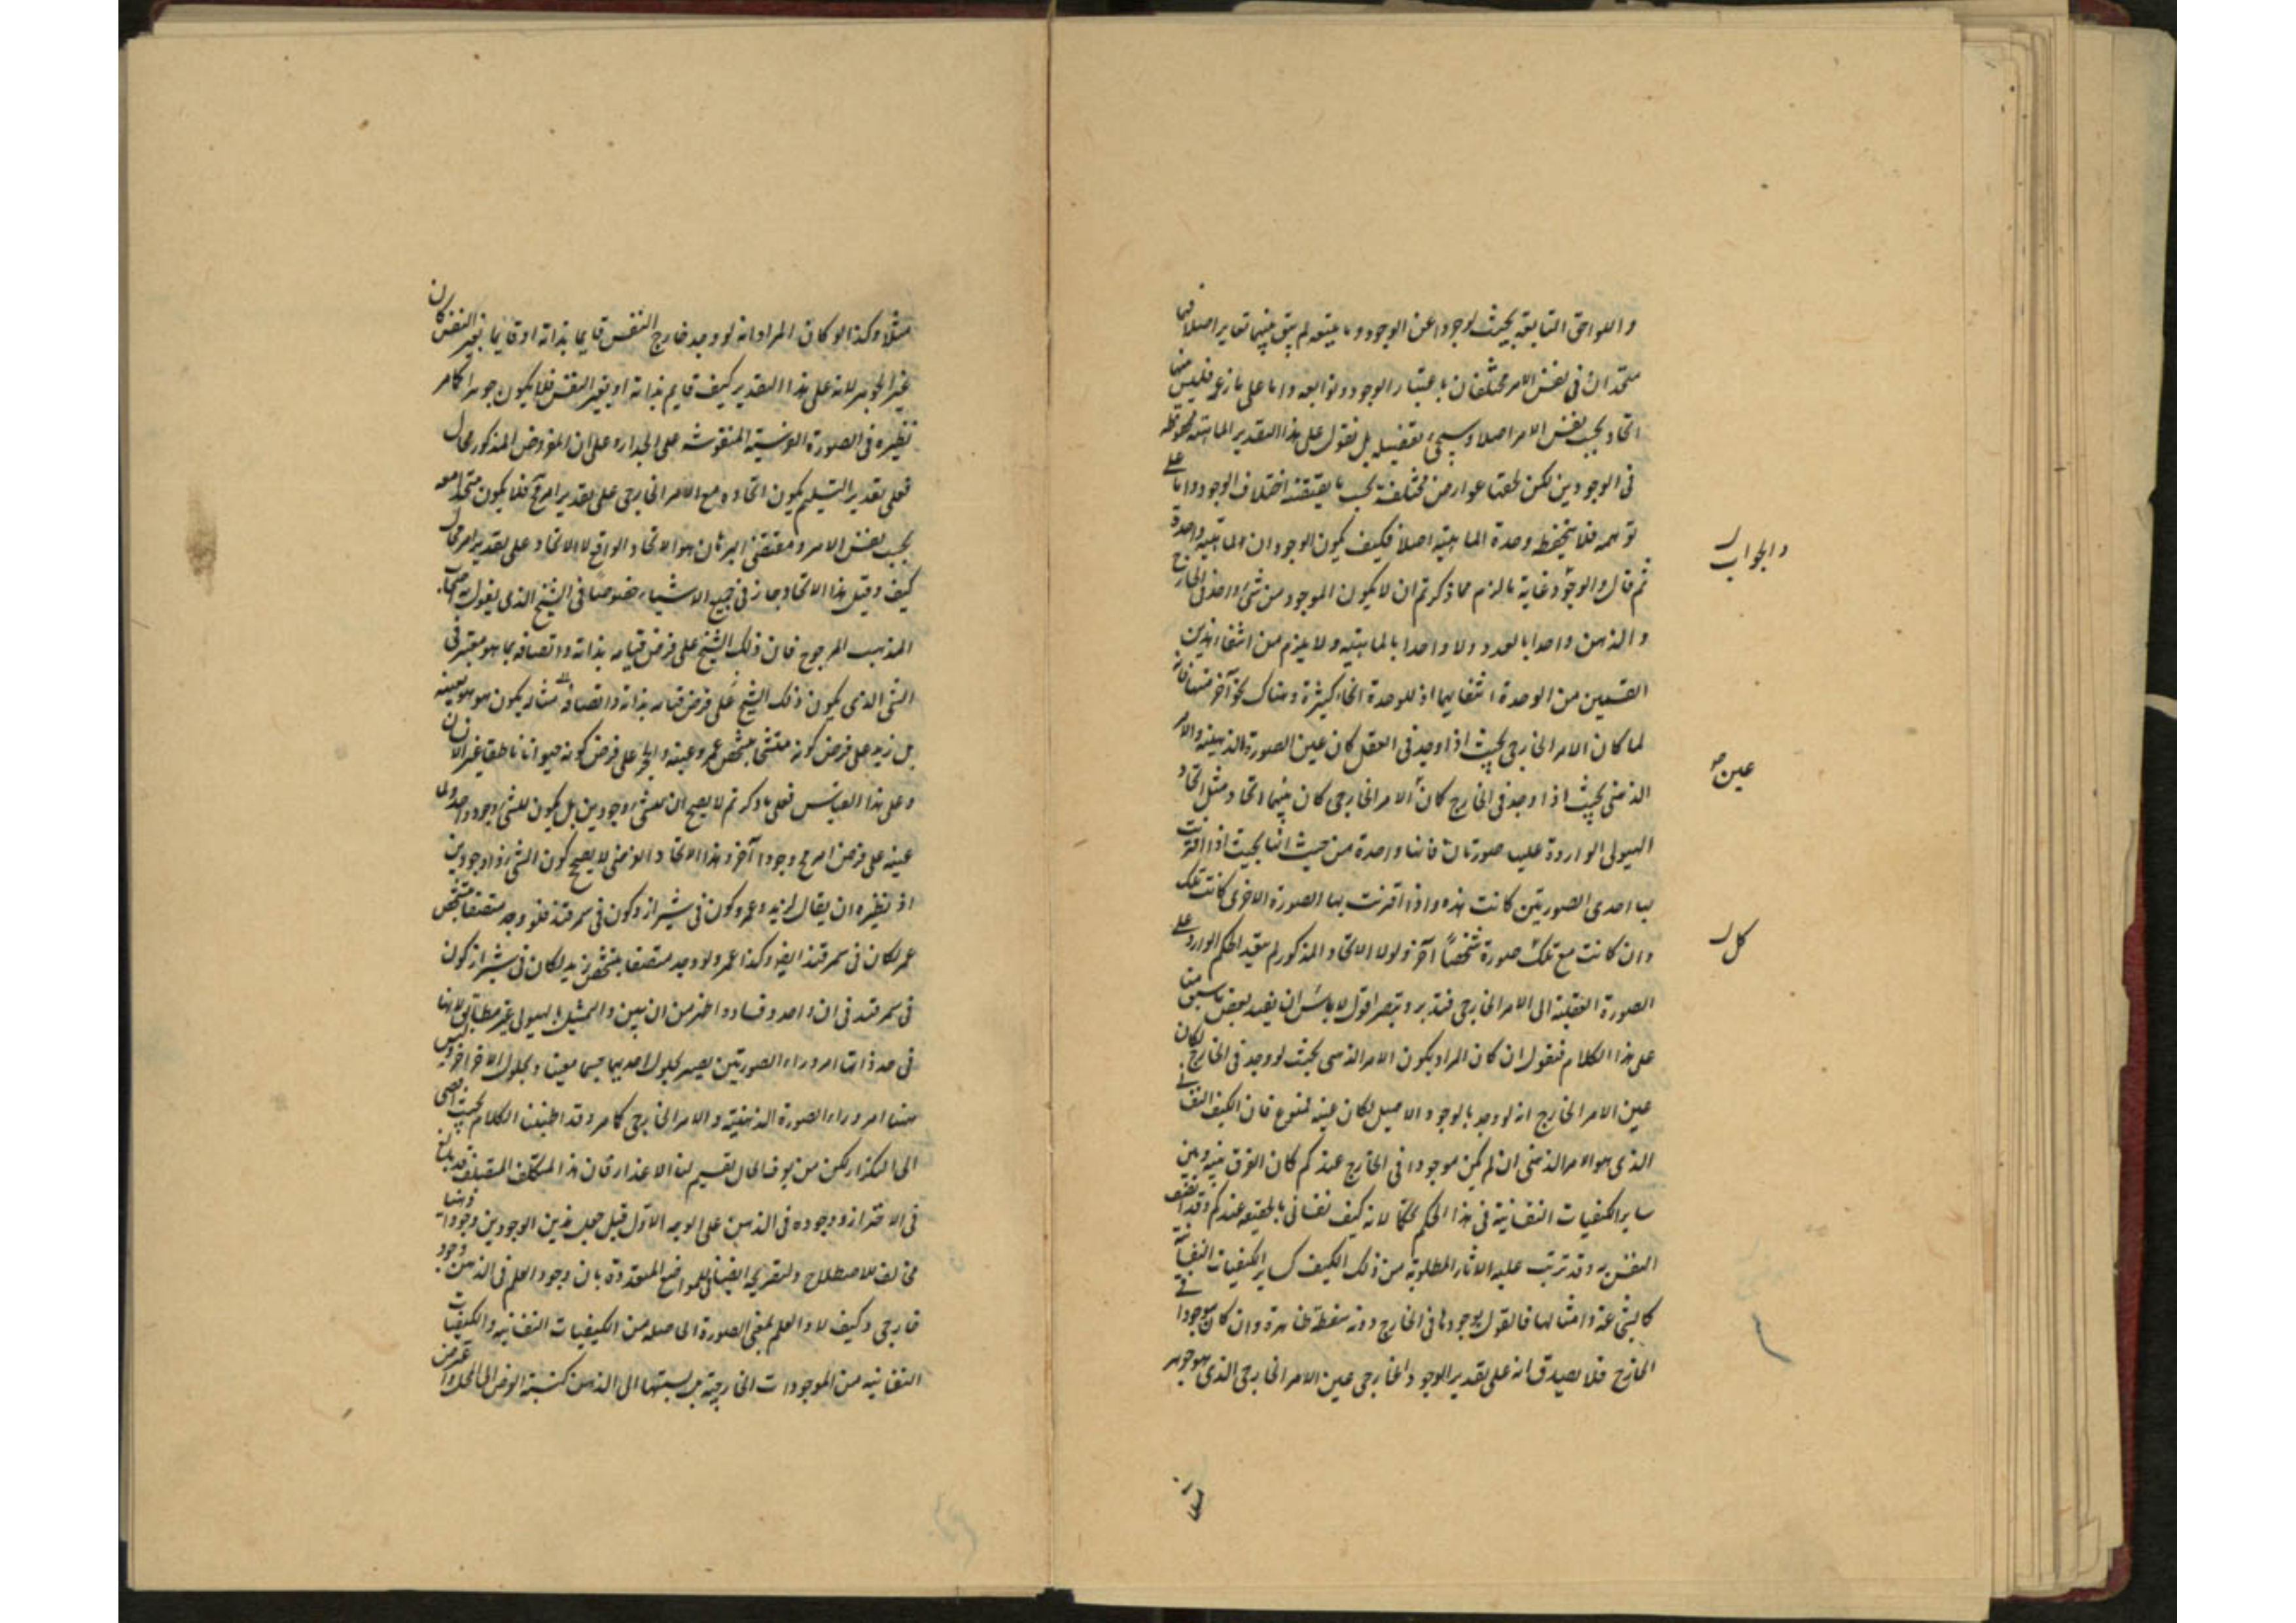 واللواحق التابعة بحيث لو جردا عن الوجود وما يتبعه لم يبق بينهما تغاير اصلا فهما
متحدان فى نفس الامر مختلفان باعتبار الوجود وتوابعه واما على ما زعم فليس منها
اتحاد بحسب نفس الامر اصلا وسيجئ تفصيله بل نقول على هذا التقدير الماهية محفوظة
فى الوجودين لكن لحقها عوارض مختلفة بحسب ما يقتضه اختلاف الوجود واما على
توهمه فلا يتحفظ وحدة الماهية اصلا فكيف يكون الوجودان لماهية واحدة
ثم قال والوجود غاية ما لزم مما ذكرتم ان لا يكون الموجود من شئ واحد فى الخارج
والذهن واحدا بالعدد ولا واحدا بالماهية ولا يلزم من انتفاء هذين
القسمين من الوحدة انتفاءها اذ للوحدة انحاء كثيرة وهناك نحو آخر منها فانه
لما كان الامر الخارجى بحيث اذا وجد فى العقل كان عين الصورة الذهنية والامر
الذهنى بحيث اذا وجد فى الخارج كان الامر الخارجى كان بينهما اتحاد مثل اتحاد
الهيولى الواردة عليه صورتان فانها واحدة من حيث انها بحيث اذا اقترنت
بها احدى الصورتين كانت هذه واذا اقرنت بها الصورة الاخرى كانت تلك
وان كانت مع تلك صورة شخصا آخر ولولا الاتحاد المذكور لم يتقيد الحكم الوارد على
الصورة العقلية الى الامر الخارجى فتدبر وتبصر اقول لا باس ان نعيد بعض ما سبق منا
على هذا الكلام فنقول ان كان المراد بكون الامر الذهنى بحيث لو وجد فى الخارج لكان
عين الامر الخارج انه لو وجد بالوجود الاصيل لكان عينه فممنوع فان الكيف النفسانى
الذى هو الامر الذهنى ان لم يكن موجودا فى الخارج عندكم كان الفرق بينه وبين
ساير الكيفيات النفسانية فى هذا الحكم تحكما لانه كيف نفسانى بالحقيقة عندكم وقد اتصف
النفس به وقد ترتب عليه الاثار المطلوبة من ذلك الكيف كساير الكيفيات النفسانية
كالشجاعة وامثالها فالقول بوجودها فى الخارج دونه سفسطة ظاهرة وان كان موجودا فى
الخارج فلا يصدق انه على تقدير الوجود الخارجى عين الامر الخارجى الذى هو جوهر
والجواب
عين صح
كل
مثلا وكذا لو كان المراد انه لو وجد خارج النفس قايما بذاته او قايما بغير النفس كان
غير الجوهر لانه على هذا التقدير كيف قايم بذاته او بغير النفس فلا يكون جوهرا كما مر
نظيره فى الصورة الفرسية المنقوشة على الجدار وعلى ان المفروض المذكور محال
فعلى تقدير التسليم يكون اتحاده مع الامر الخارجى على تقدير امر مح فلا يكون متحدا معه
بحسب نفس الامر ومقتضى البرهان هو الاتحاد الواقع لا الاتحاد على تقدير امر محال
كيف وقيل هذا الاتحاد جاز فى جميع الاشياء خصوصا فى الشبح الذى يقول به اصحاب
المذهب المرجوح فان ذلك الشبح على فرض قيامه بذاته واتصافه بما هو معتبر فى
الشئ الذى يكون ذلك الشبح على فرض قيامه بذاته واتصافه مثاله يكون هو هو بعينه
بل زيد على فرض كونه متشخصا بتشخص عمرو عينه والحجر على فرض كونه حيوانا ناطقا عين الانسان
وعلى هذا القياس فعلى ما ذكرتم لا يصح ان للشئ وجودين بل يكون للشئ وجود واحد ولما
عينه على فرض امر مح وجودا آخر وهذا الاتحاد الفرضى لا يصحح كون الشئ ذا وجودين
اذ نظيره ان يقال لزيد وعمرو كون فى شيراز وكون فى سمرقند فلو وجد متصفا بتشخص
عمر لكان فى سمرقند ايضا وكذا عمرو لو وجد متصفا بتشخص زيد لكان فى شيراز كون
فى سمرقند فى ان واحد وفساده اظهر من ان يبين والتمثيل بالهيولى غير مطابق لانها
فى حد ذاتها امر وراء الصورتين يصير بحلول احديهما جسما معينا وبحلول الاخر اخر وليس
ههنا امر وراء الصورة الذهنية والامر الخارجى كما مر وقد اطنبنا الكلام بحيث افضى
الى التكرار لكن من يوف الحال يقسم لنا الاعذار فان هذا المتكلف المتصلف قد بالغ
فى الاحتراز ووجوده فى الذهن على الوجه الاول قبل جعل هذين الوجودين وجودا ذهنيا
مخالف للاصطلاح ولتصريحه ايضا فى المواضع المتعددة بان وجود العلم فى الذهن وجود
خارجى وكيف لا والعلم بمعنى الصورة الحاصلة من الكيفيات النفسانية والكيفيات
النفسانية من الموجودات الخارجية بل نسبتها الى الذهن كنسبة العرض الى المحل واعترض